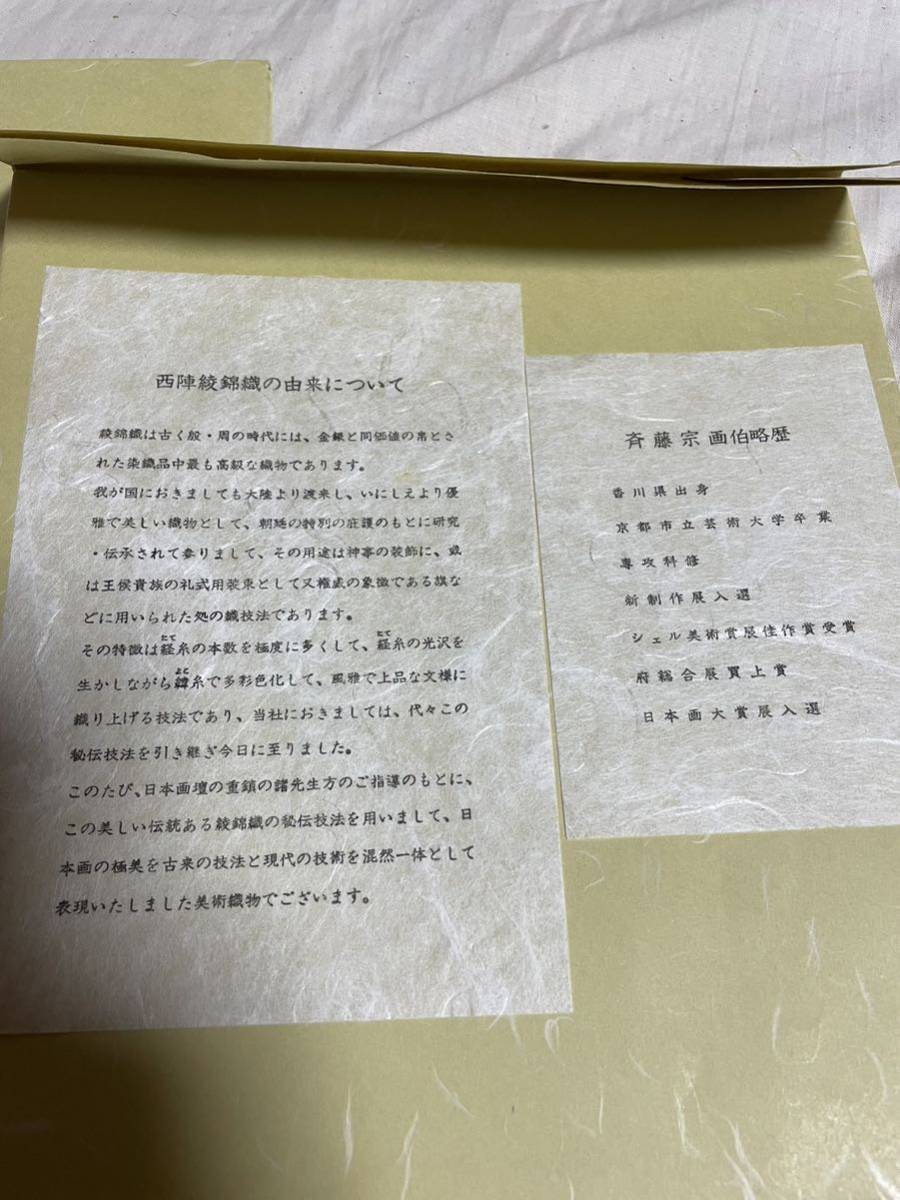 西陣綾錦織の由来について
綾錦織は古く殷・周の時代には、金銀と同価値の帛とさ
れた染織品中最も高級な織物であります。
我が国におきましても大陸より渡来し、いにしえより優
雅で美しい織物として、朝廷の特別の庇護のもとに研究
・伝承されて参りまして、その用途は神事の装飾に、或
は王侯貴族の礼式用装束として又権威の象徴である旗な
どに用いられた処の織技法であります。
その特徴は経糸の本数を極度に多くして、経糸の光沢を
生かしながら緯糸で多彩色化して、風雅で上品な文様に
織り上げる技法であり、当社におきましては、代々この
秘伝技法を引き継ぎ今日に至りました。
このたび、日本画壇の重鎮の諸先生方のご指導のもとに、
この美しい伝統ある綾錦織の秘伝技法を用いまして、日
本画の極美を古来の技法と現代の技術を混然一体として
表現いたしました美術織物でございます。
斉藤宗画伯略歴
香川県出身
京都市立芸術大学卒業
専攻科修
新制作展入選
シェル美術賞展佳作賞受賞
府総合展買上賞
日本画大賞展入選